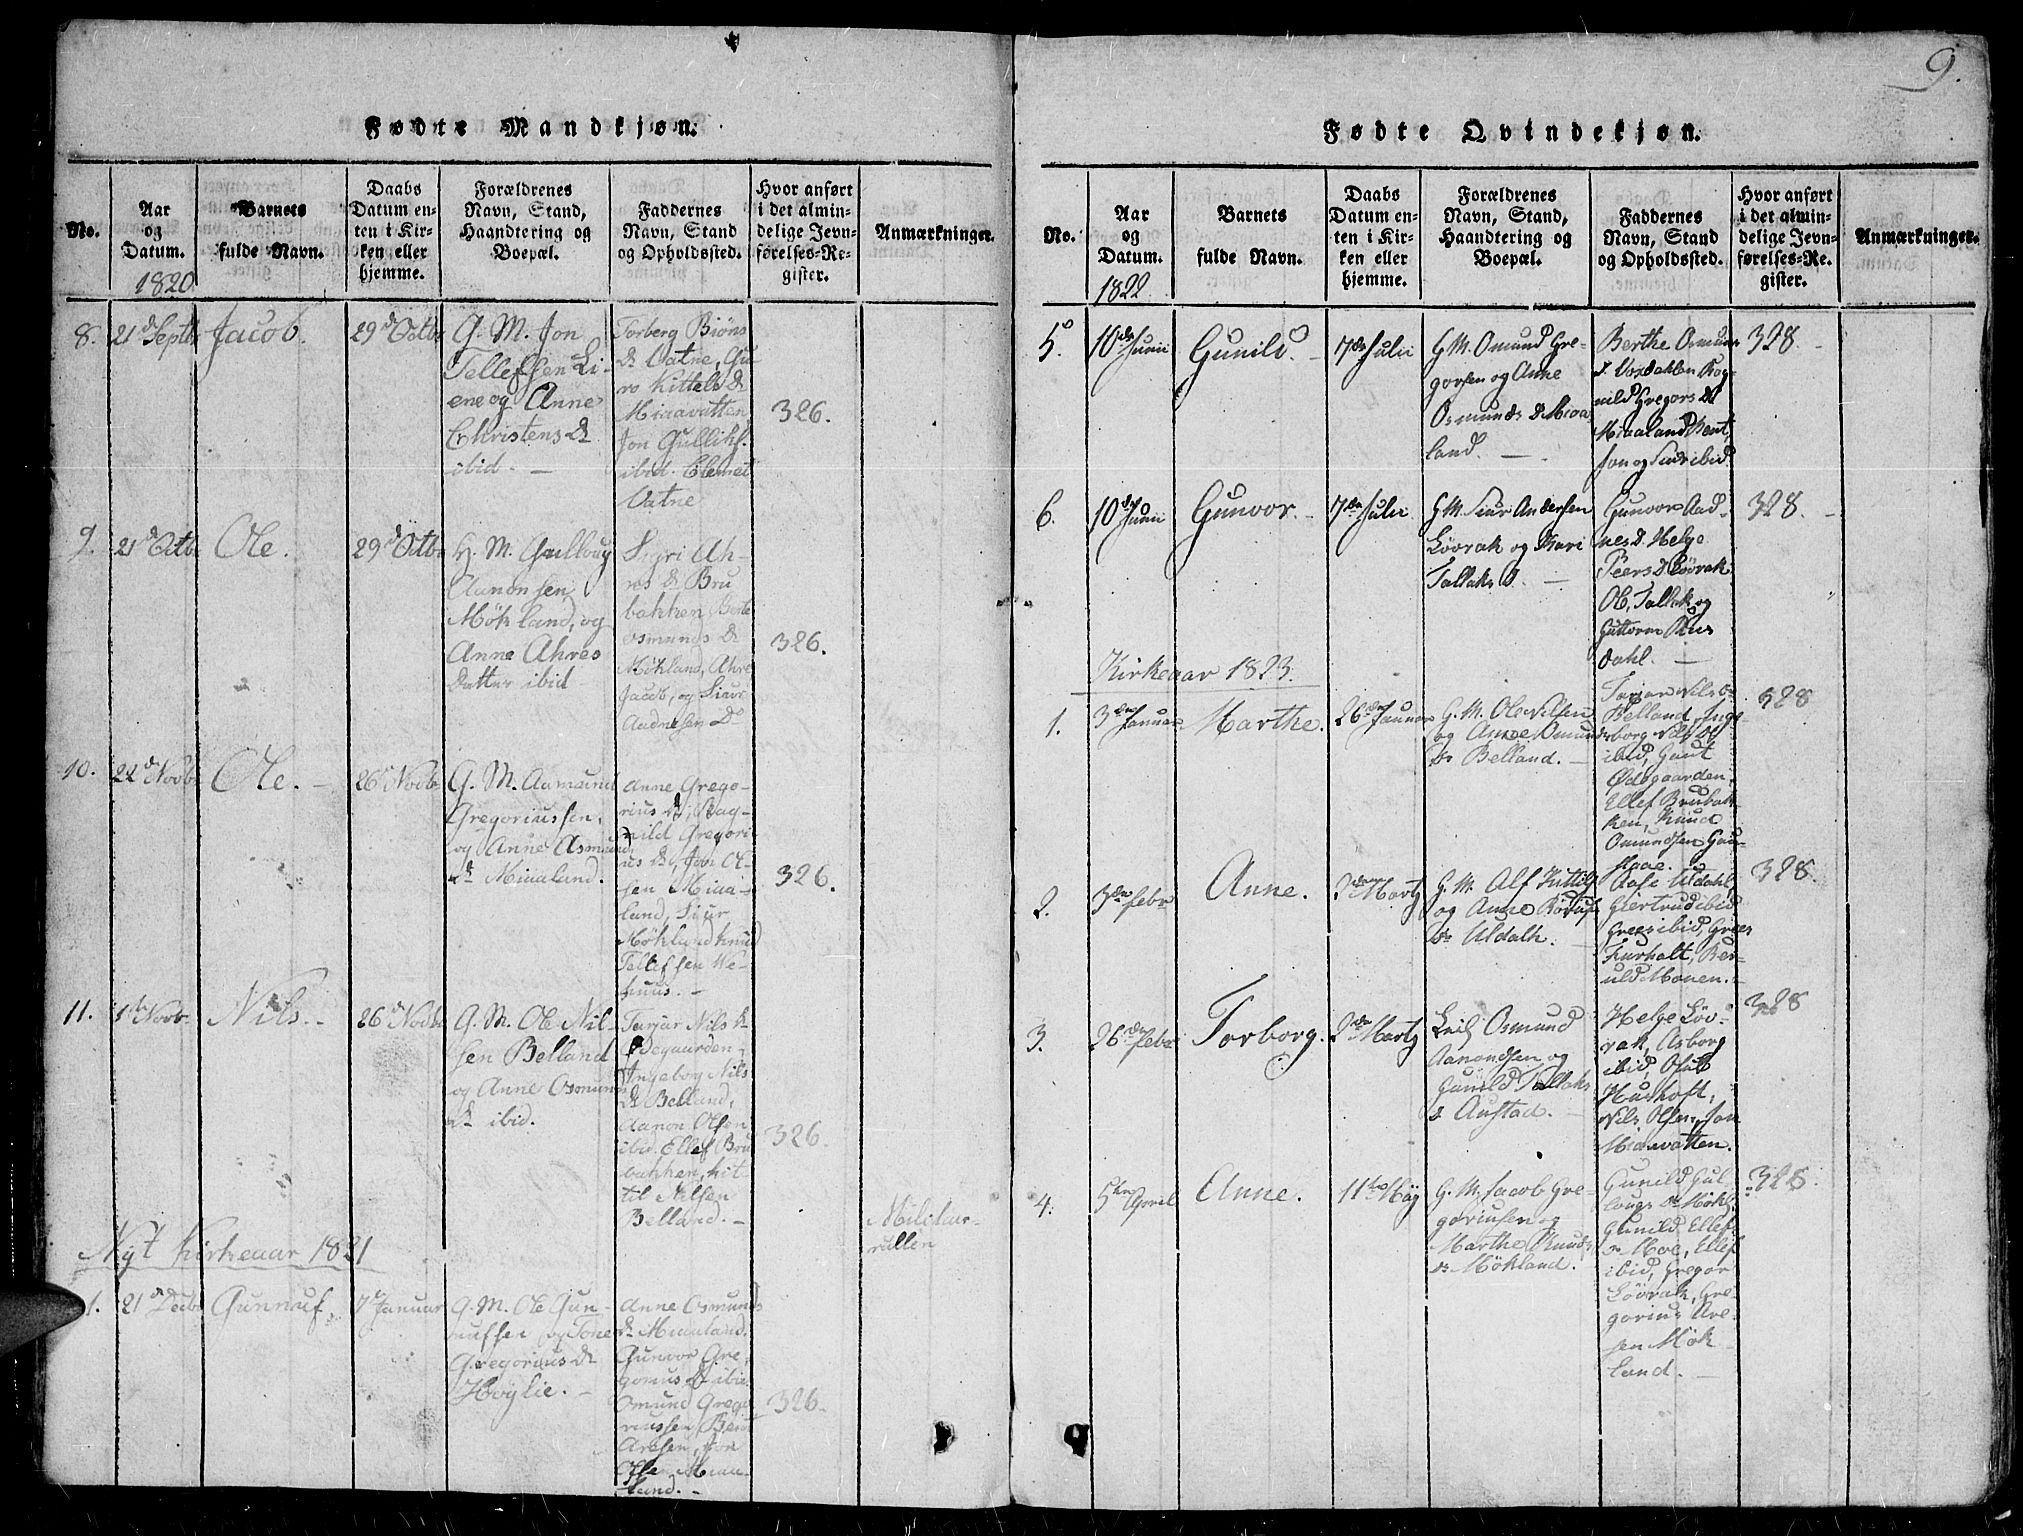 Fødte Mandkjøn.
No.
Aar
og
Datum.
1820
Barnets
fulde Navn.
Daabs
Datum en-
ten i Kir-
ken eller
hjemme.
Forældrenes
Navn, Stand,
Haandtering og
Boepæl.
Faddernes
Navn, Stand
og Opholdssted.
Hvor anført
i det almin-
delige Jevn-
førelses-Re-
gister.
Anmærkninger.
8.
21d Septbr
Jacob.
29d Octbr
G. M. Jon
Tellefsen Li-
ene og Anne
Christens D
ibid. —
Torberg Biöns
D Vatne, Gu
ro Kittels D
Miaavatten
Jon Gulliks.
ibid. Clemet
Vatne
326.
9.
21d Octbr
Ole.
29d Octbr
G. M. Gulloug
Aanonsen
Mökland, og
Anne Ahres
datter ibid
Sigri Ah-
res D Bru
bakken, Berte
Osmunds D
Mökland, Ahre
Jacob, og Siur
Aadnesen D
326.
10.
22d Novbr
Ole. —
26d Novbr
G. M. Aamund
Gregoriussen,
og Anne Asmund
D Miaaland.
Anne Grego-
rius D, Rag-
nild Gregori
us D, Jon Ol-
sen Miaa-
land, Siur
Mökland Knud
Tellefsen We-
huus. —
326.
11.
1te Novbr
Nils. —
26d Novbr
G. M. Ole Nil-
sen Belland
og Anne Osmun
D ibid.
Tarjar Nils D
Ödegaarden
Ingebog Nils
D Belland,
Aanon Olsen
ibid. Ellef Bru
bakken, Kit
til Nilsen
Belland. —
326.
Nyt Kirkeaar 1821
Militair-
rullen
1.
21d Decbr
Gunnuf.
7d Januar
G. M. Ole Gun-
nufsen og Tone
Gregorius D
Höylie. —
Anne Osmunds
D Miaaland.
Gunvor Gre
gorius D ibid.
Osmund Grego
riussen Bein
Aresen, Jon
Olsen Miaa-
land. —
326.
9.
Fødte Qvindekjøn.
No.
Aar
og
Datum.
1822
Barnets
fulde Navn.
Daabs
Datum en-
ten i Kir-
ken eller
hjemme.
Forældrenes
Navn, Stand,
Haandtering og
Boepæl.
Faddernes
Navn, Stand
og Opholdssted.
Hvor anført
i det almin-
delige Jevn-
førelses-Re-
gister.
Anmærkninger.
5.
10de Junii
Gunild. —
7de Julii
G. M. Omund Gre-
gorsen og Anne
Osmunds D Miaa
land. —
Berthe Osmun
D. Rag-
nild Gregors D
Miaaland Bent
Jon og ibid
328. —
6.
10de Junii
Gunvor. —
7de Julii
G. M. Siur Andersen
Lövrak og Kari
Tallaks D. —
Gunvor Aad-
nes D. Helge
Peers D Lövrak
Ole, Tallak og
Guttorm Rus
dahl. —
328. —
Kirkeaar 1823.
1.
3die Januar
Marthe.
26de Januar
G. M. Ole Nilsen
og Anne Osmunds
D Belland. —
Tarjar Nils D
Belland, Inge
borg Nils D
ibid, Gaut
Ødegaarden,
Ellef Brubak-
ken, Knud
Omundsen Gau-
slaae. —
328
2.
3die Febr
Anne.
2den Martz
G. M. Alf Kittils
og Anne Börufs
D Uldalh. —
Aase Uldahl,
Giertrud ibid
Grees ibid, Grees
Furholt, Ber-
uld Monen. —
328.
3.
26de Febr
Torborg.
2den Martz
Leils Osmund
Aanondsen og
Gunild Tallaks
D Austad. —
Helge Löv-
rak, Asborg
ibid, Osul
Huskoft,
Nils Olsen, Jon
Miaavatten.
328
4.
5te April
Anne.
11te May
G. M. Jacob Gre-
goriusen og
Marthe Knuds
D Mökland.
Gunild Gul
lougs D Mökl.
Gunild Ellef
D Moe, Ellef
ibid, Gregor
Lövrak, Gre-
gorius Are-
sen Mök
land. —
328.